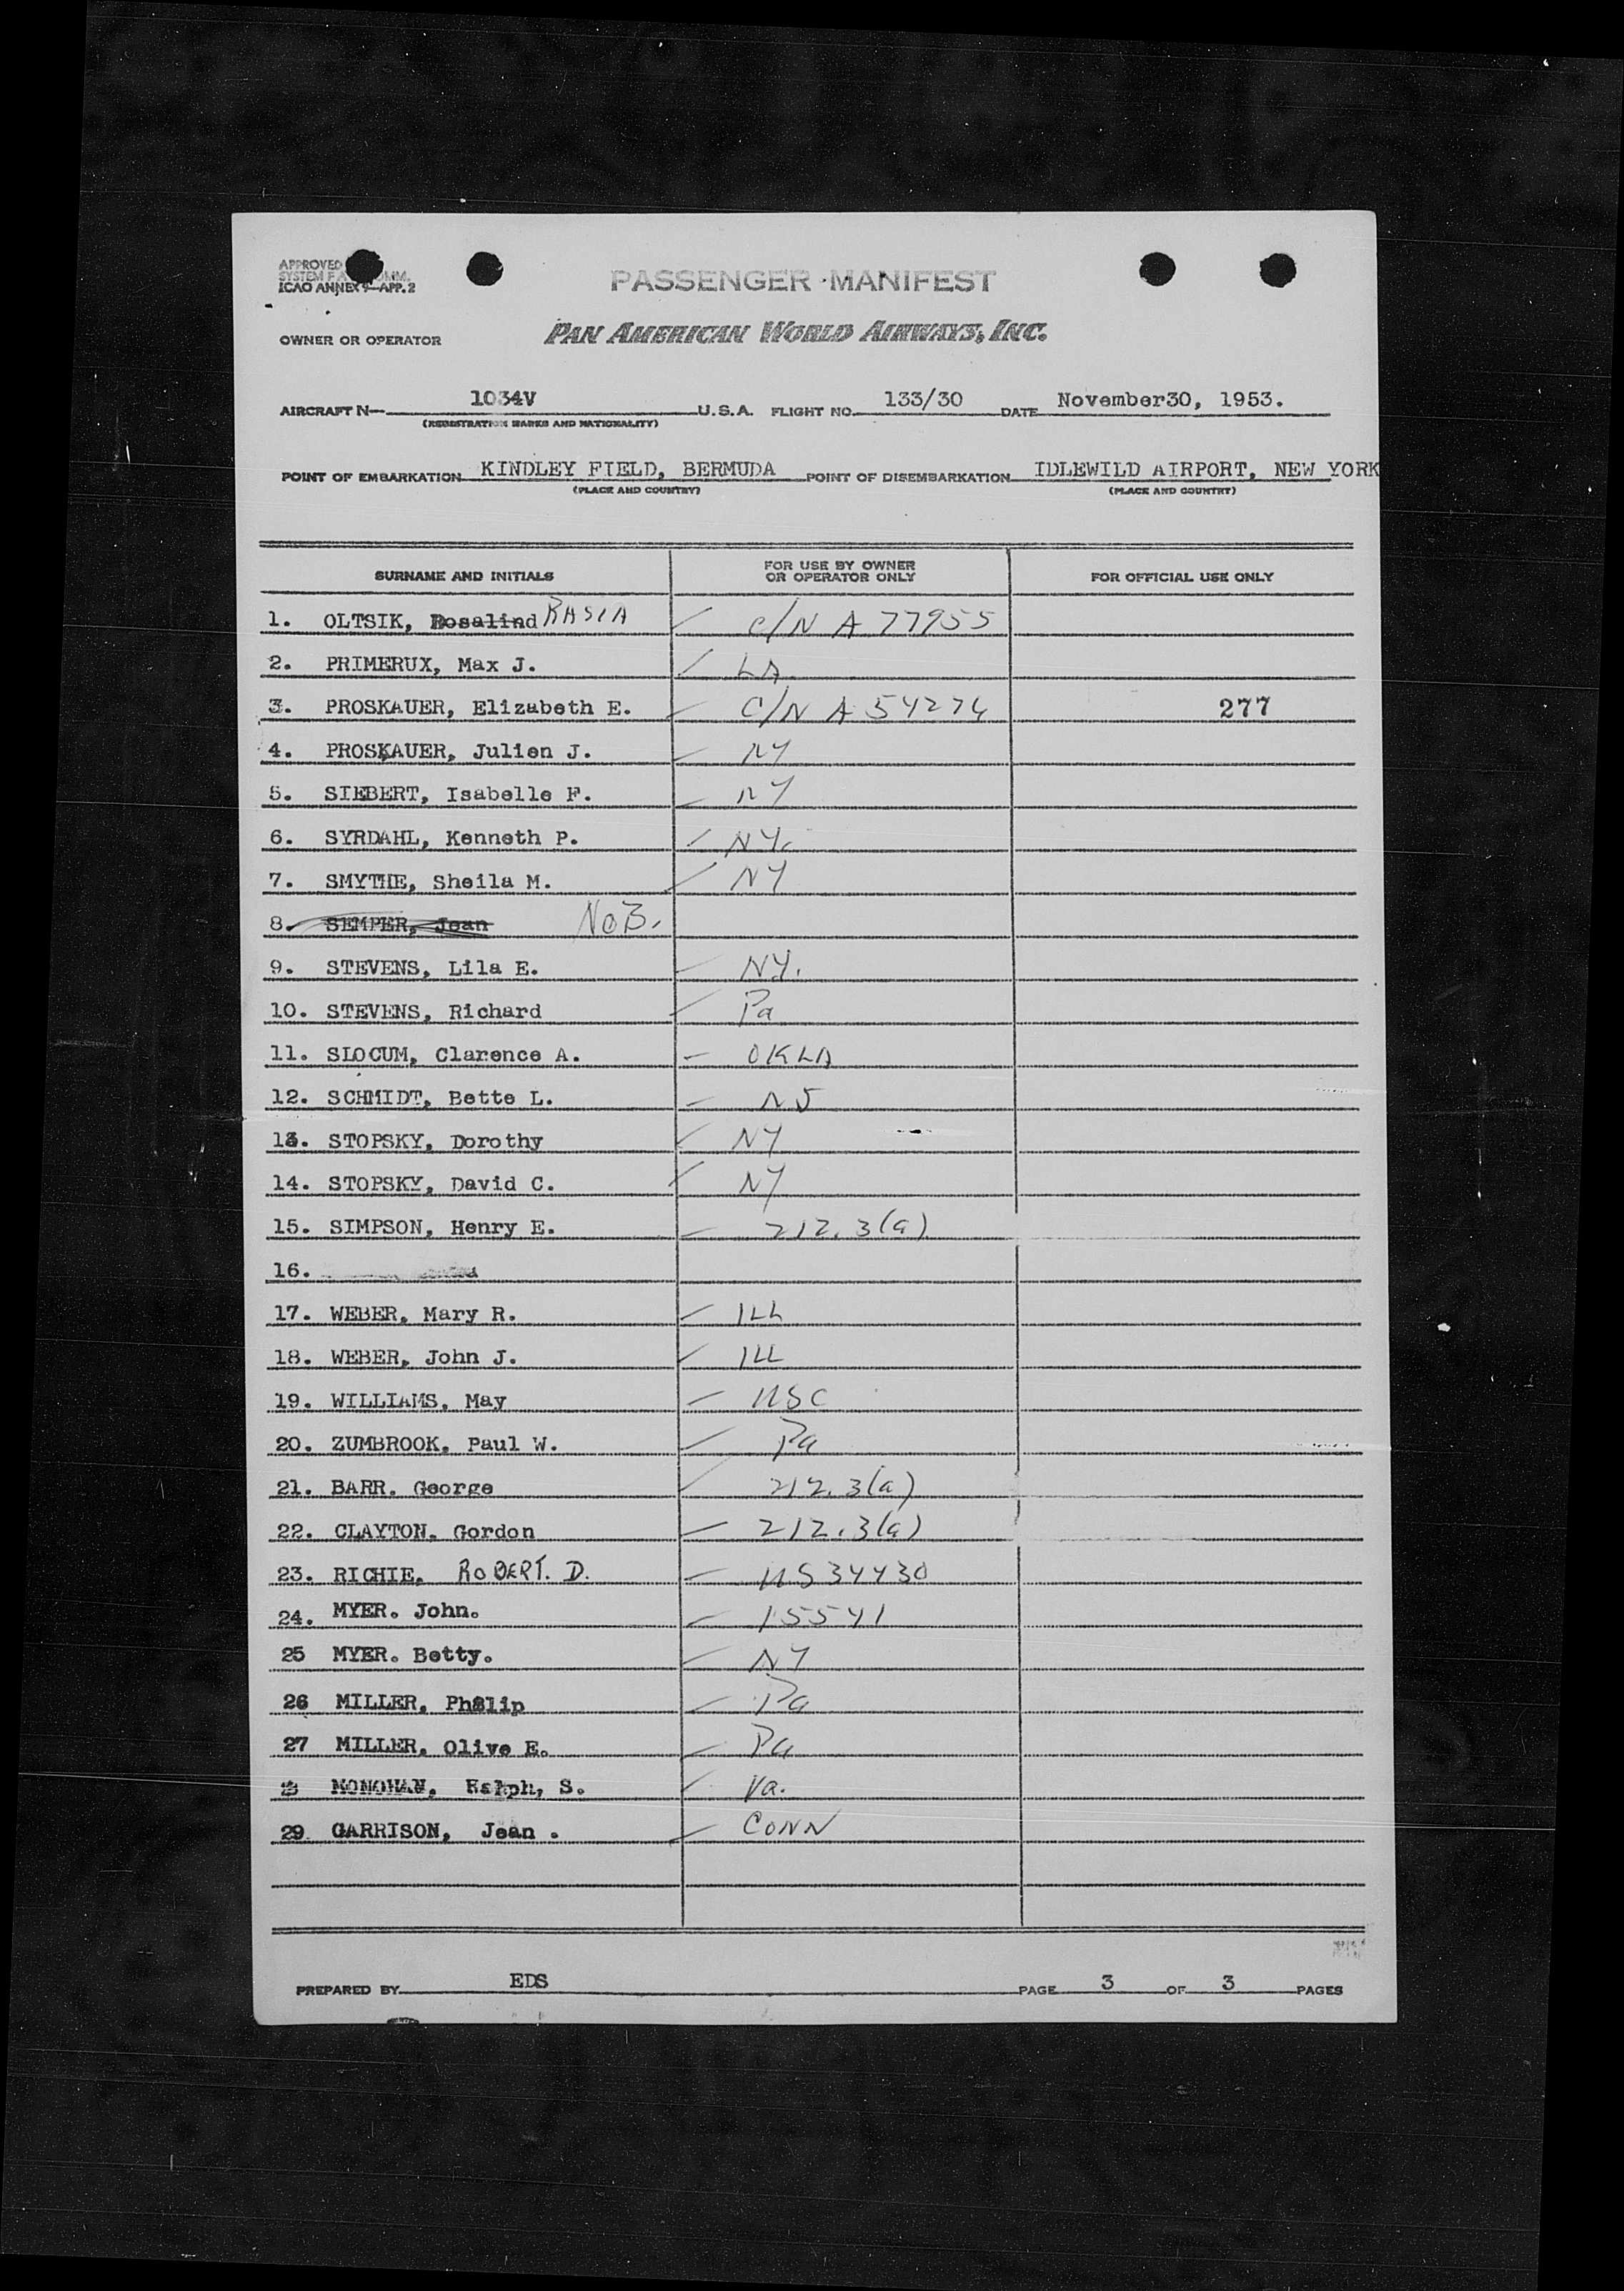 APPROVED
ICAO ANNEX 9—APP. 2
PASSENGER MANIFEST
OWNER OR OPERATOR PAN AMERICAN WORLD AIRWAYS, INC.
AIRCRAFT N— 1034V U.S.A. FLIGHT NO. 133/30 DATE November30, 1953.
(REGISTRATION MARKS AND NATIONALITY)
POINT OF EMBARKATION KINDLEY FIELD, BERMUDA POINT OF DISEMBARKATION IDLEWILD AIRPORT, NEW YORK
(PLACE AND COUNTRY) (PLACE AND COUNTRY)
SURNAME AND INITIALS FOR USE BY OWNER OR OPERATOR ONLY FOR OFFICIAL USE ONLY
1. OLTSIK, Rosalind RASIA C/N A 77955
2. PRIMERUX, Max J. LA
3. PROSKAUER, Elizabeth E. C/N A 54274 277
4. PROSKAUER, Julien J. NY
5. SIEBERT, Isabelle F. NY
6. SYRDAHL, Kenneth P. NY.
7. SMYTHE, Sheila M. NY
8. SEMPER, Jean NoB.
9. STEVENS, Lila E. NY.
10. STEVENS, Richard Pa
11. SLOCUM, Clarence A. OKLA
12. SCHMIDT, Bette L. NJ
13. STOPSKY, Dorothy NY
14. STOPSKY, David C. NY
15. SIMPSON, Henry E. 212.3(a)
16.
17. WEBER, Mary R. ILL
18. WEBER, John J. ILL
19. WILLIAMS, May USC
20. ZUMBROOK, Paul W. Pa
21. BARR. George 212.3(a)
22. CLAYTON. Gordon 212.3(a)
23. RICHIE. ROBERT. D. US 34430
24. MYER. John. 15541
25 MYER. Betty. NY
26 MILLER, Philip Pa
27 MILLER, Olive E. Pa
MONOHAN, Ralph, S. Va.
29 GARRISON, Jean . CONN
PREPARED BY EDS PAGE 3 OF 3 PAGES